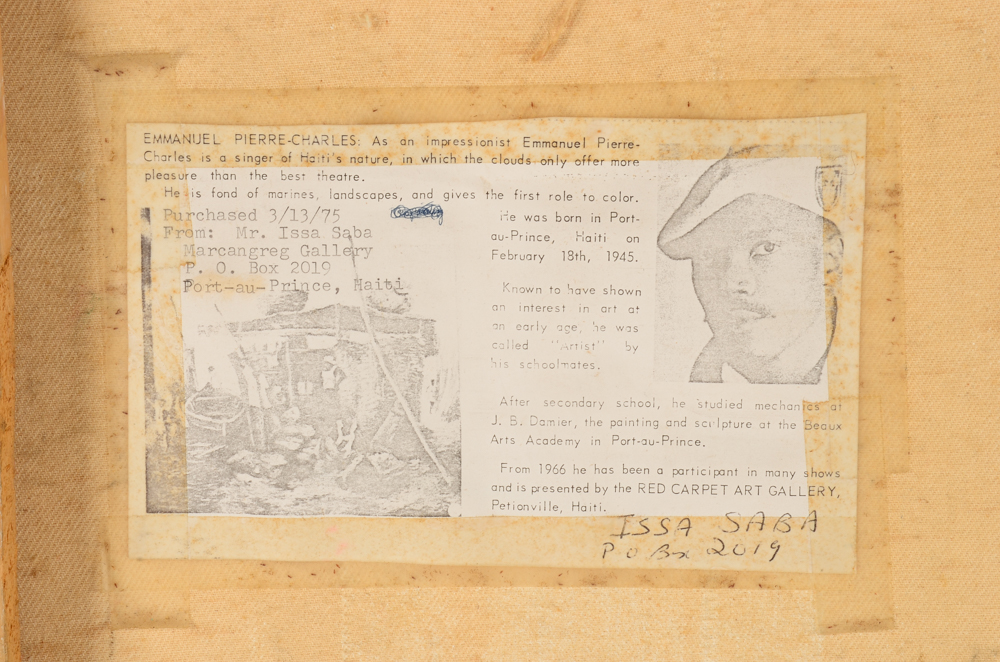 EMMANUEL PIERRE-CHARLES: As an impressionist Emmanuel Pierre-
Charles is a singer of Haiti's nature, in which the clouds only offer more
pleasure than the best theatre.
He is fond of marines, landscapes, and gives the first role to color.
Purchased 3/13/75
From: Mr. Issa Saba
Marcangreg Gallery
P. O. Box 2019
Port-au-Prince, Haiti
He was born in Port-
au-Prince, Haiti on
February 18th, 1945.
Known to have shown
an interest in art at
an early age, he was
called "Artist" by
his schoolmates.
After secondary school, he studied mechanics at
J. B. Damier, the painting and sculpture at the Beaux
Arts Academy in Port-au-Prince.
From 1966 he has been a participant in many shows
and is presented by the RED CARPET ART GALLERY,
Petionville, Haiti.
ISSA SABA
P O Box 2019